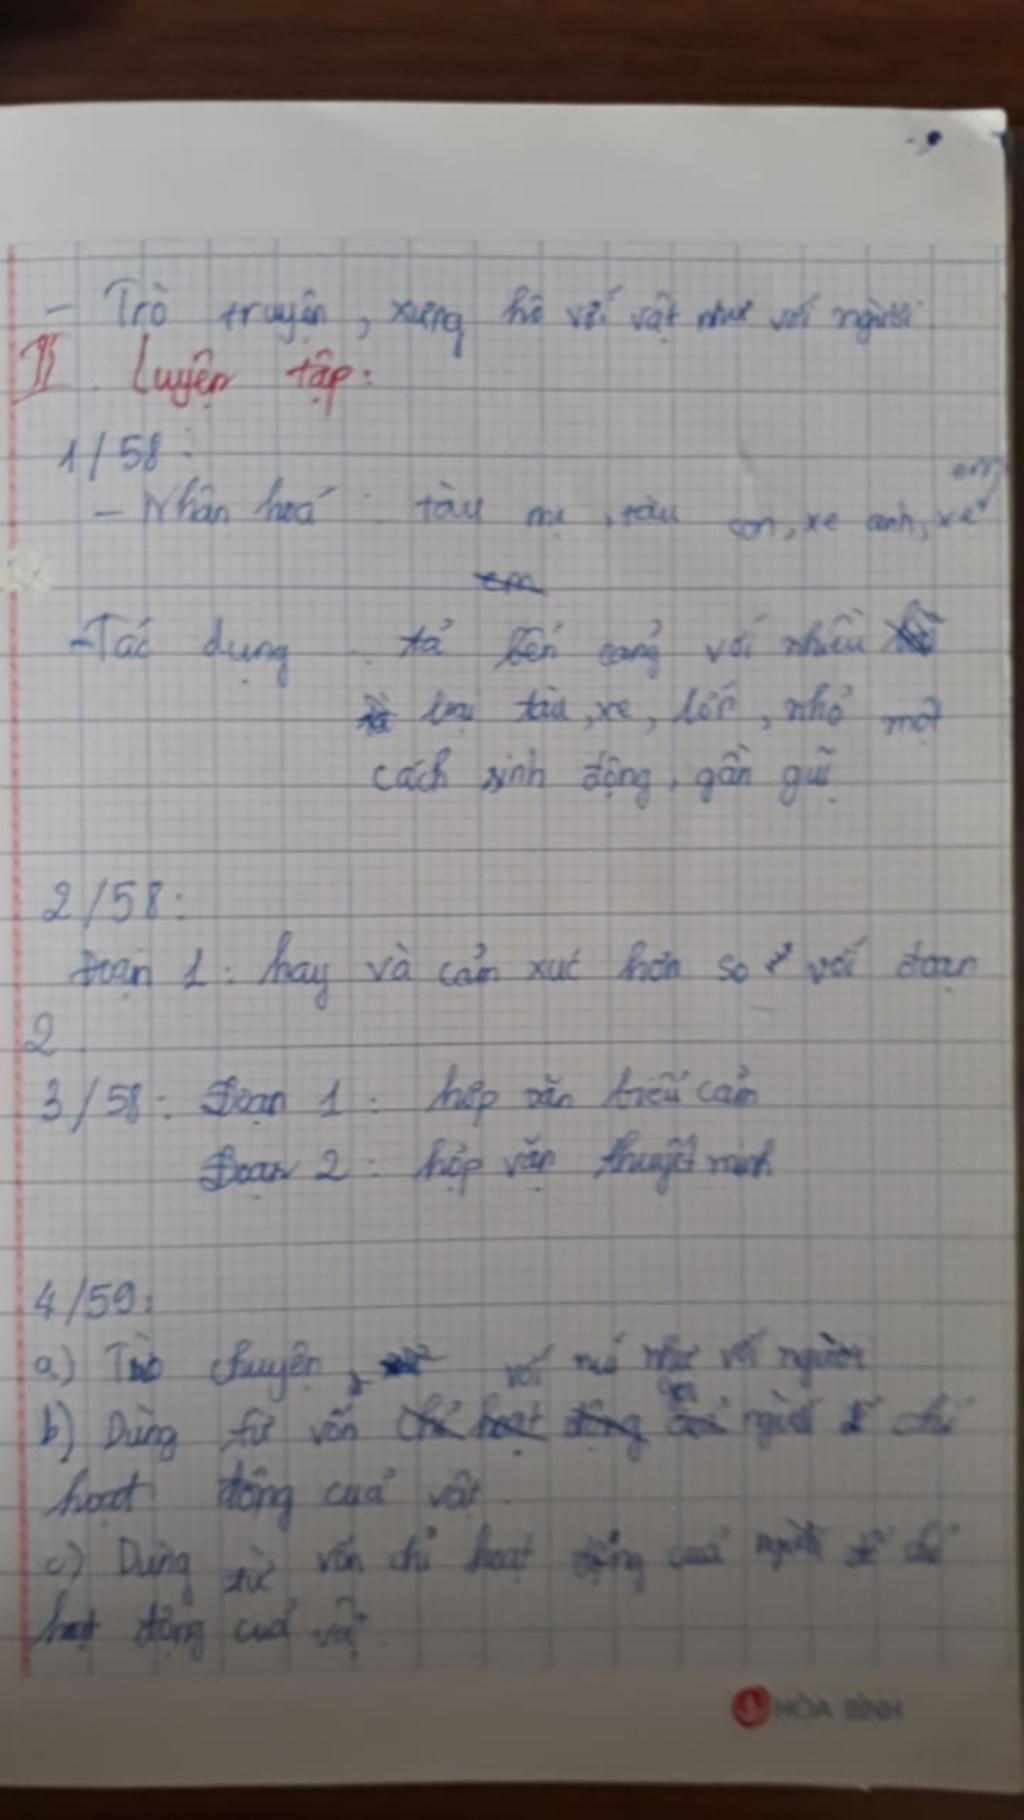 - Trò truyện, xưng hô với vật như với người
II. Luyện tập:
1/58:
em
- Nhân hoá: tàu mẹ, tàu con, xe anh, xe
em
- Tác dụng: tả bến cảng với nhiều
loại tàu, xe, lớn, nhỏ một
cách sinh động, gần gũi
2/58:
Đoạn 1: hay và cảm xúc hơn so với đoạn
2
3/58: Đoạn 1: hợp văn biểu cảm
Đoạn 2: hợp văn thuyết minh
4/59:
a) Trò chuyện, với như với người
b) Dùng từ vốn chỉ hoạt động người để chỉ
hoạt động của vật.
c) Dùng từ vốn chỉ hoạt động của người để chỉ
hoạt động của vật.
HÒA BÌNH